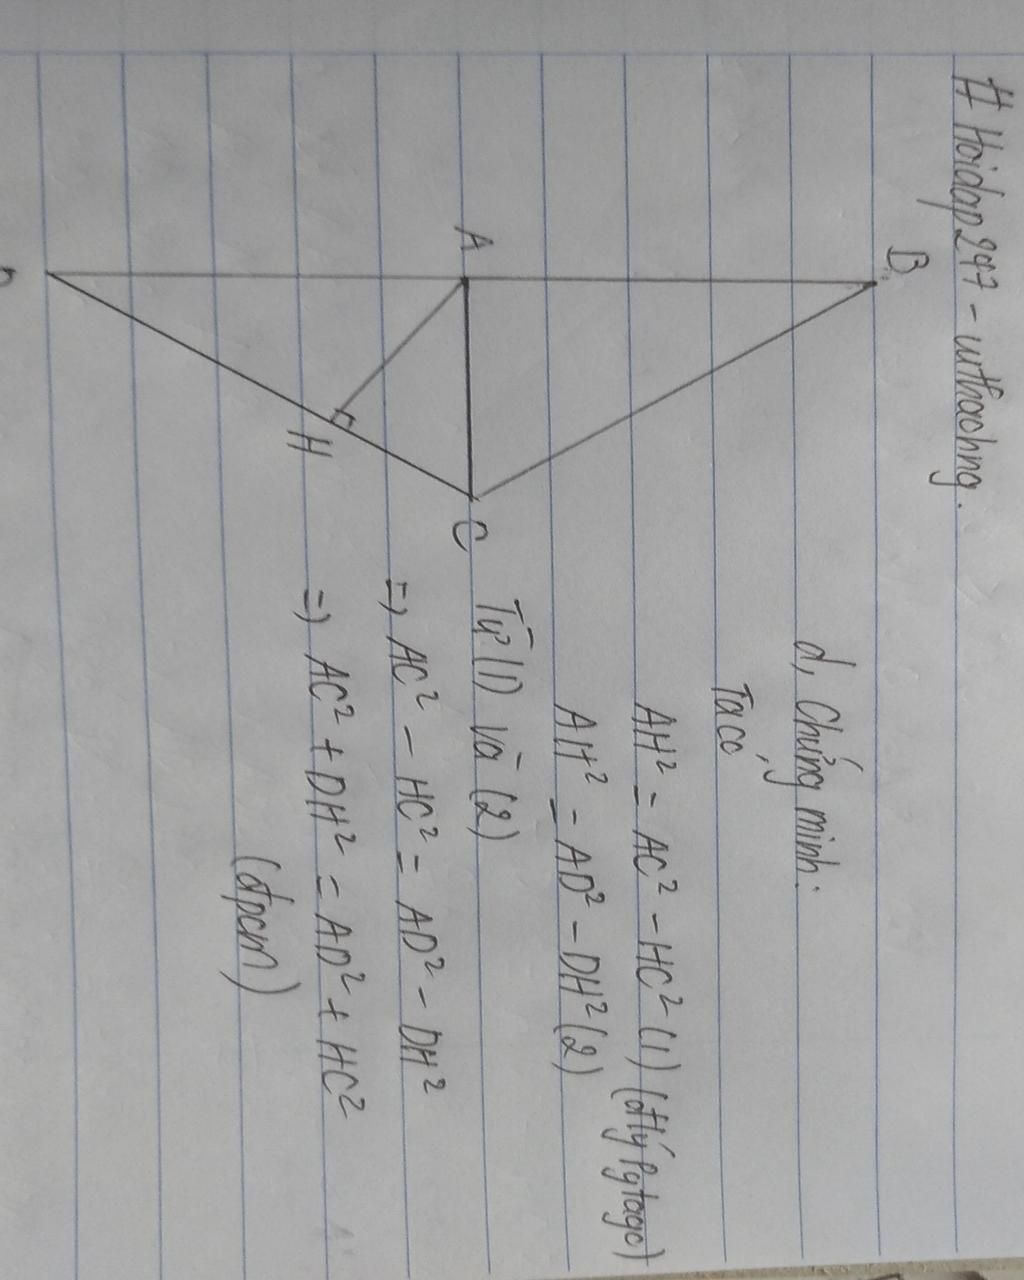 # Hoidap247 - unthachng.
B
d, Chứng minh:
Ta có
AH² = AC² - HC² (1) (đlý Pytago)
AH² = AD² - DH² (2)
A
C
Từ (1) và (2)
=> AC² - HC² = AD² - DH²
H
=> AC² + DH² = AD² + HC²
(đpcm)
D